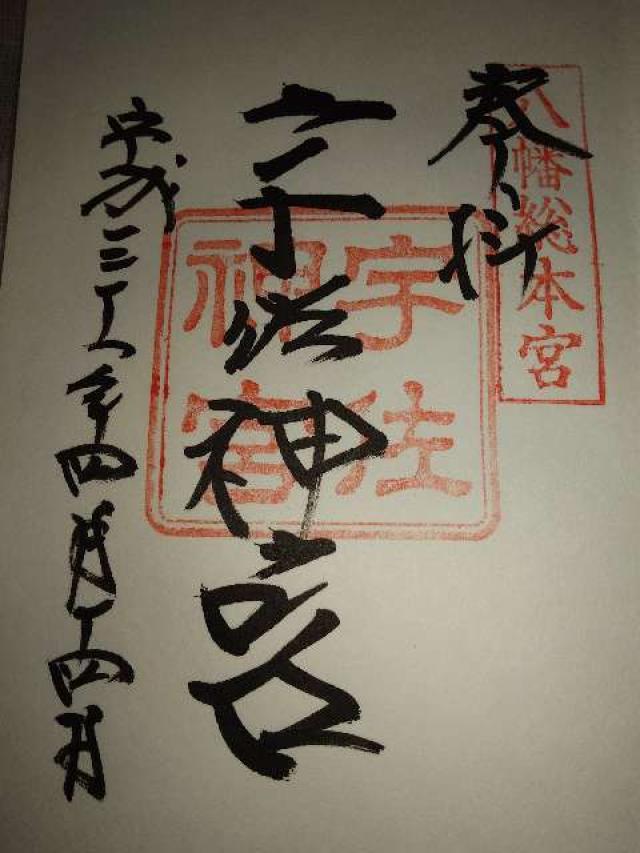 八幡総本宮
奉拝
宇佐神宮
宇佐神宮
平成二十八年四月十四日